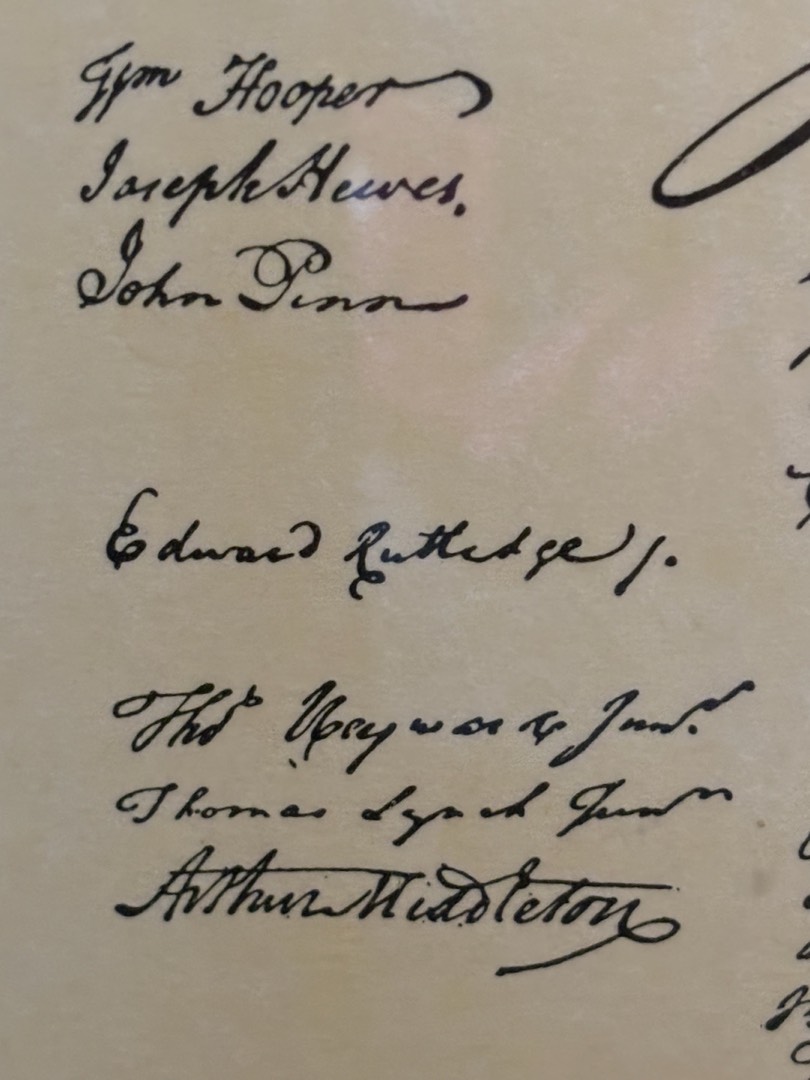 Wm Hooper
Joseph Hewes.
John Penn
Edward Rutledge /.
Thos Heyward Junr.
Thomas Lynch Junr
Arthur Middleton